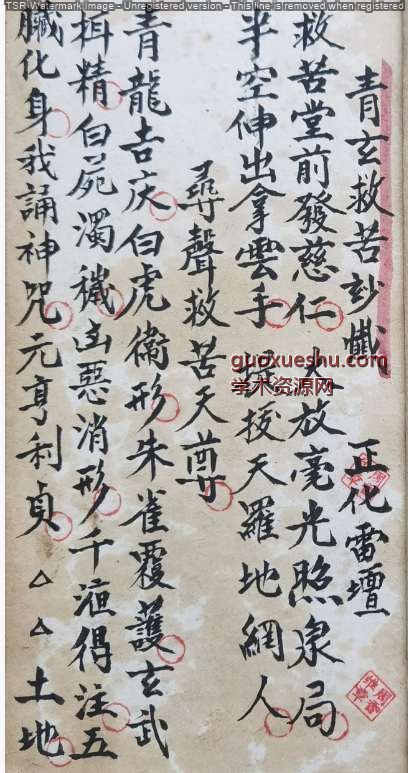 TSR Watermark Image - Unregistered version - This line is removed when registered
青玄救苦妙懺 正化雷壇
救苦堂前發慈仁 大放毫光照泉局
半空伸出拿雲手 提拔天羅地網人
尋聲救苦天尊
青龍吉庆白虎衛形朱雀覆護玄武
精白屍濁穢凶惡消形千 得注五
臟化身我誦神咒元亨利貞△△土地
guoxueshu.com
学术资源网